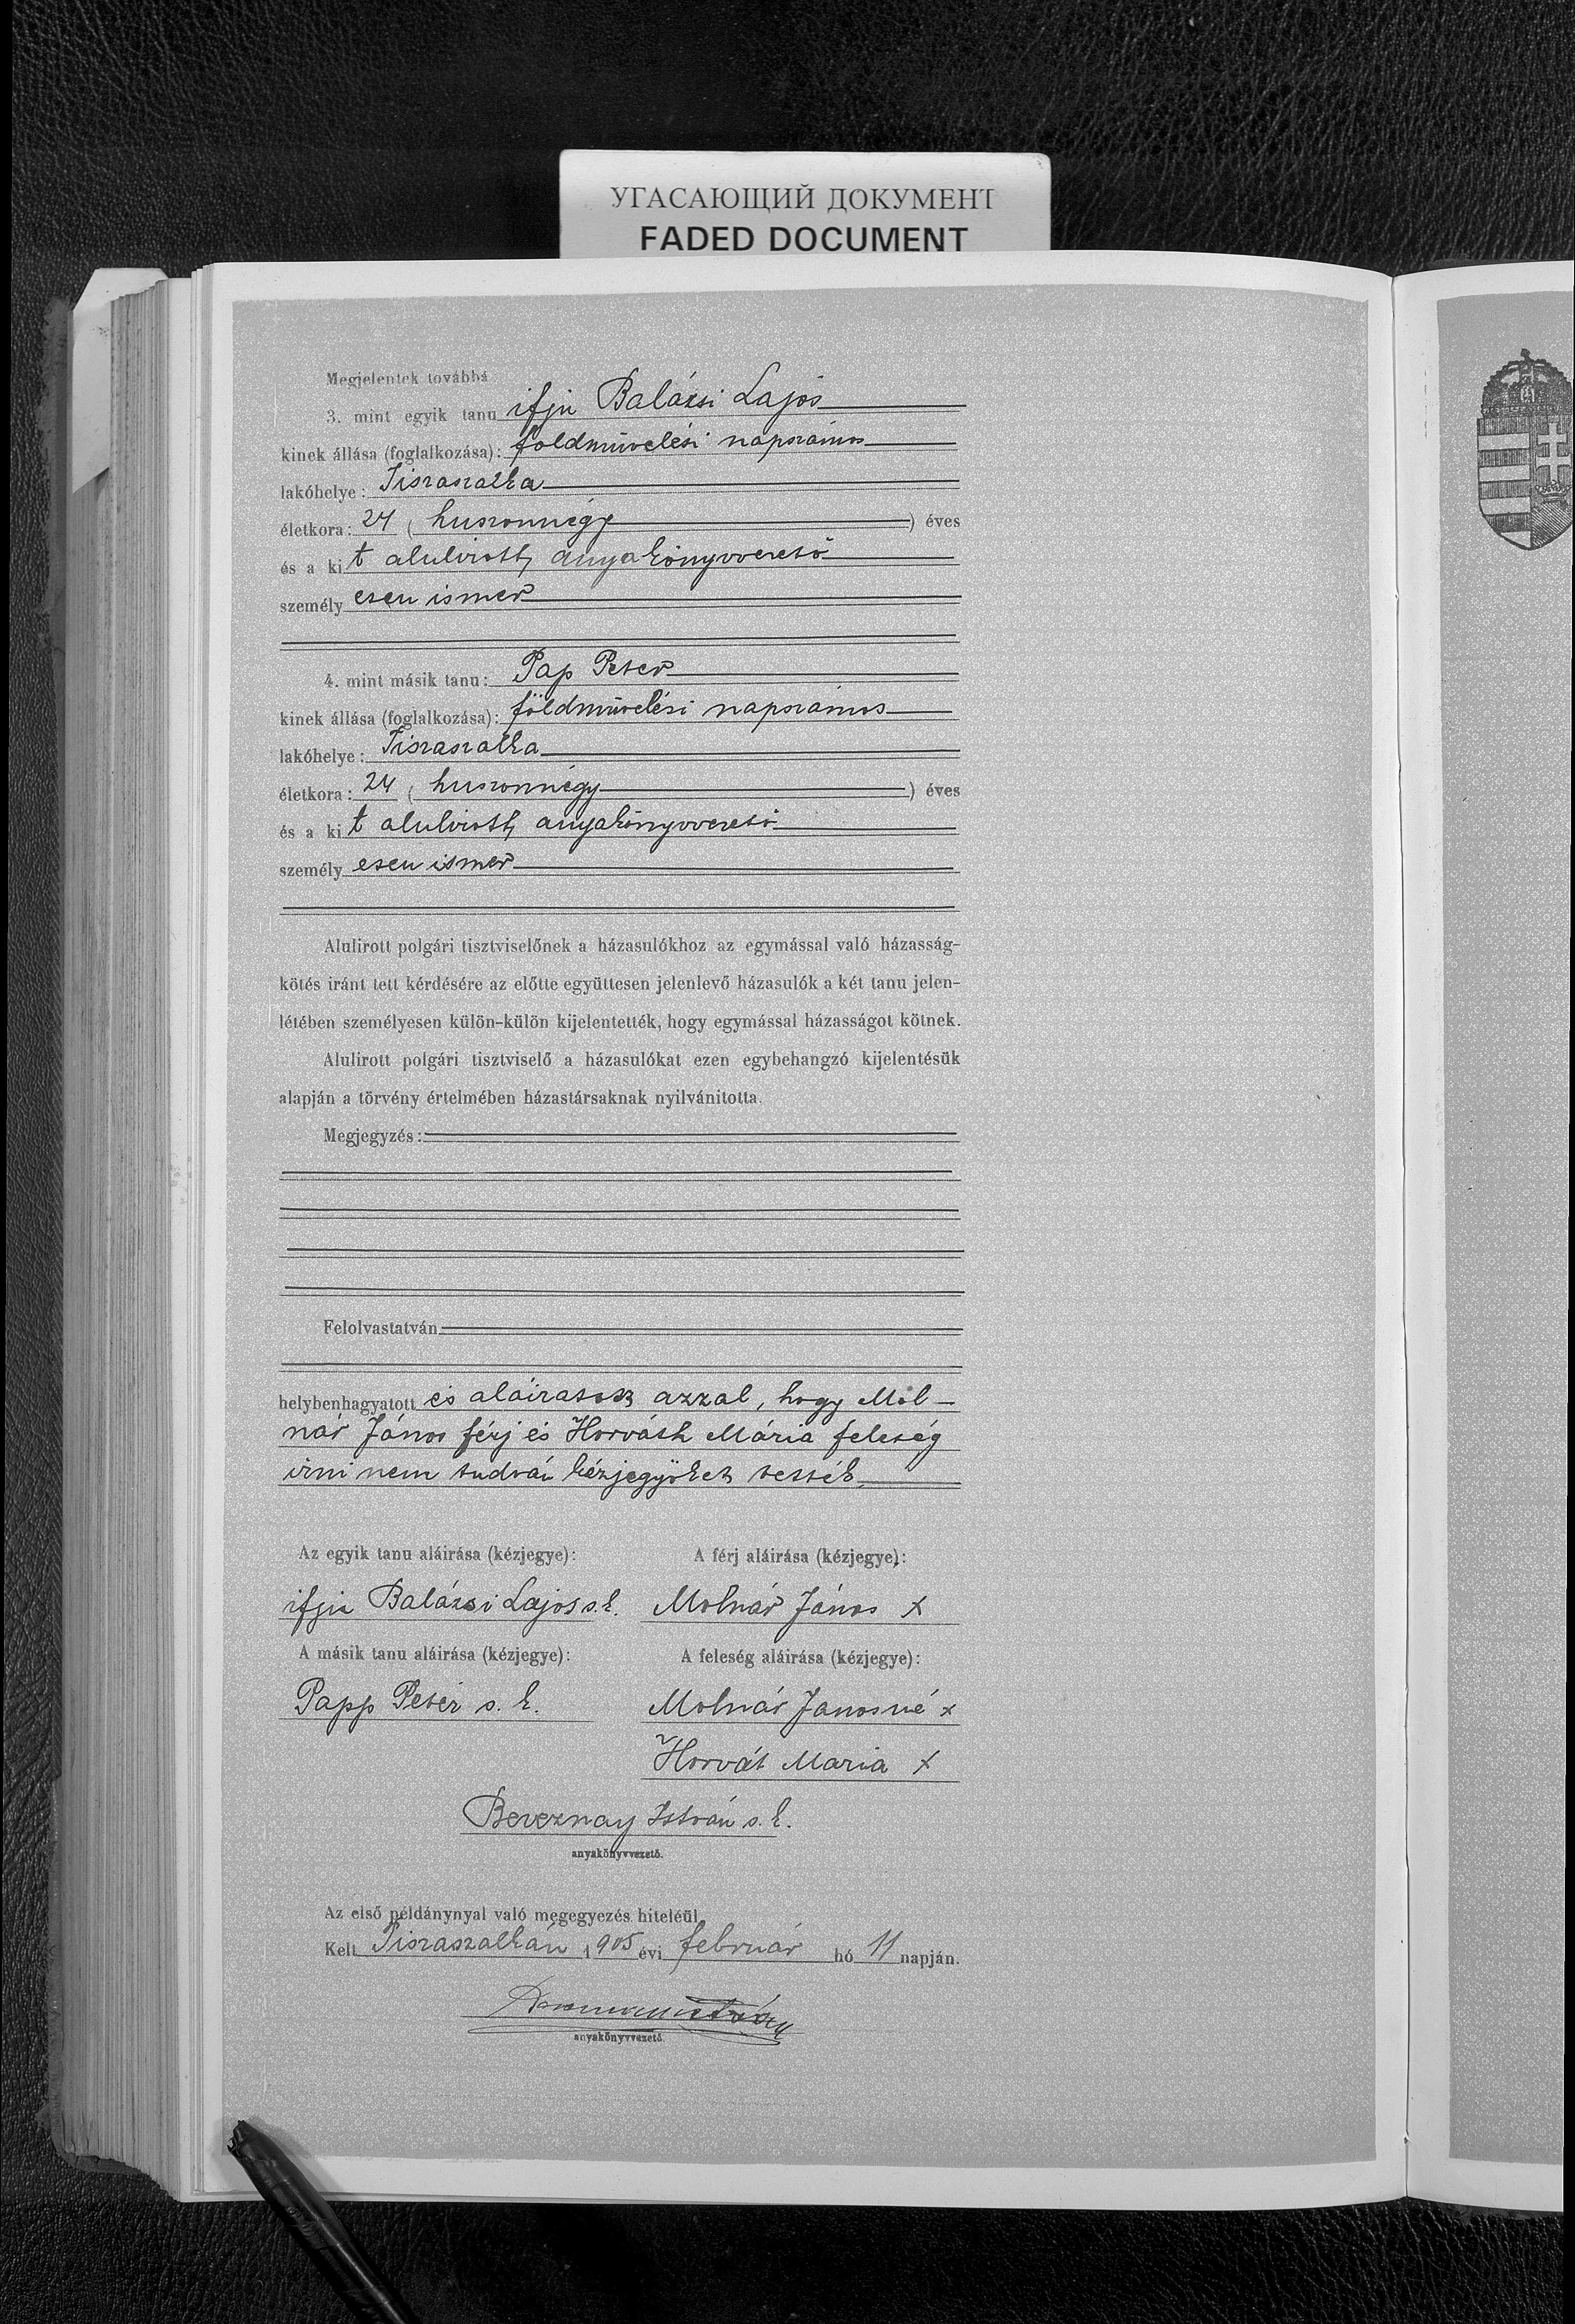 УГАСАЮЩИЙ ДОКУМЕНТ
FADED DOCUMENT
Megjelentek továbbá
3. mint egyik tanu ifju Balázsi Lajos
kinek állása (foglalkozása): földmüvelési napszámos
lakóhelye: Tiszaszalka
életkora: 24 (huszonnégy) éves
és a kit alulirott anyakönyvvezető
személyesen ismer
4. mint másik tanu: Pap Péter
kinek állása (foglalkozása): földmüvelési napszámos
lakóhelye: Tiszaszalka
életkora: 24 (huszonnégy) éves
és a kit alulirott anyakönyvvezető
személyesen ismer
Alulirott polgári tisztviselőnek a házasulókhoz az egymással való házasság-
kötés iránt tett kérdésére az előtte együttesen jelenlevő házasulók a két tanu jelen-
létében személyesen külön-külön kijelentették, hogy egymással házasságot kötnek.
Alulirott polgári tisztviselő a házasulókat ezen egybehangzó kijelentésük
alapján a törvény értelmében házastársaknak nyilvánitotta.
Megjegyzés:
Felolvastatván
helybenhagyatott és aláiratott azzal, hogy Mol-
nár János férj és Horváth Mária feleség
irni nem tudván kézjegyöket tették.
Az egyik tanu aláirása (kézjegye): A férj aláirása (kézjegye):
ifju Balázsi Lajos s.k. Molnár János x
A másik tanu aláirása (kézjegye): A feleség aláirása (kézjegye):
Papp Péter s. k. Molnár Janosné x
Horvát Maria x
Bereznay István s. k.
anyakönyvvezető.
Az első példánynyal való megegyezés hiteléül
Kelt Tiszaszalkán 1905 évi február hó 11 napján.
anyakönyvvezető